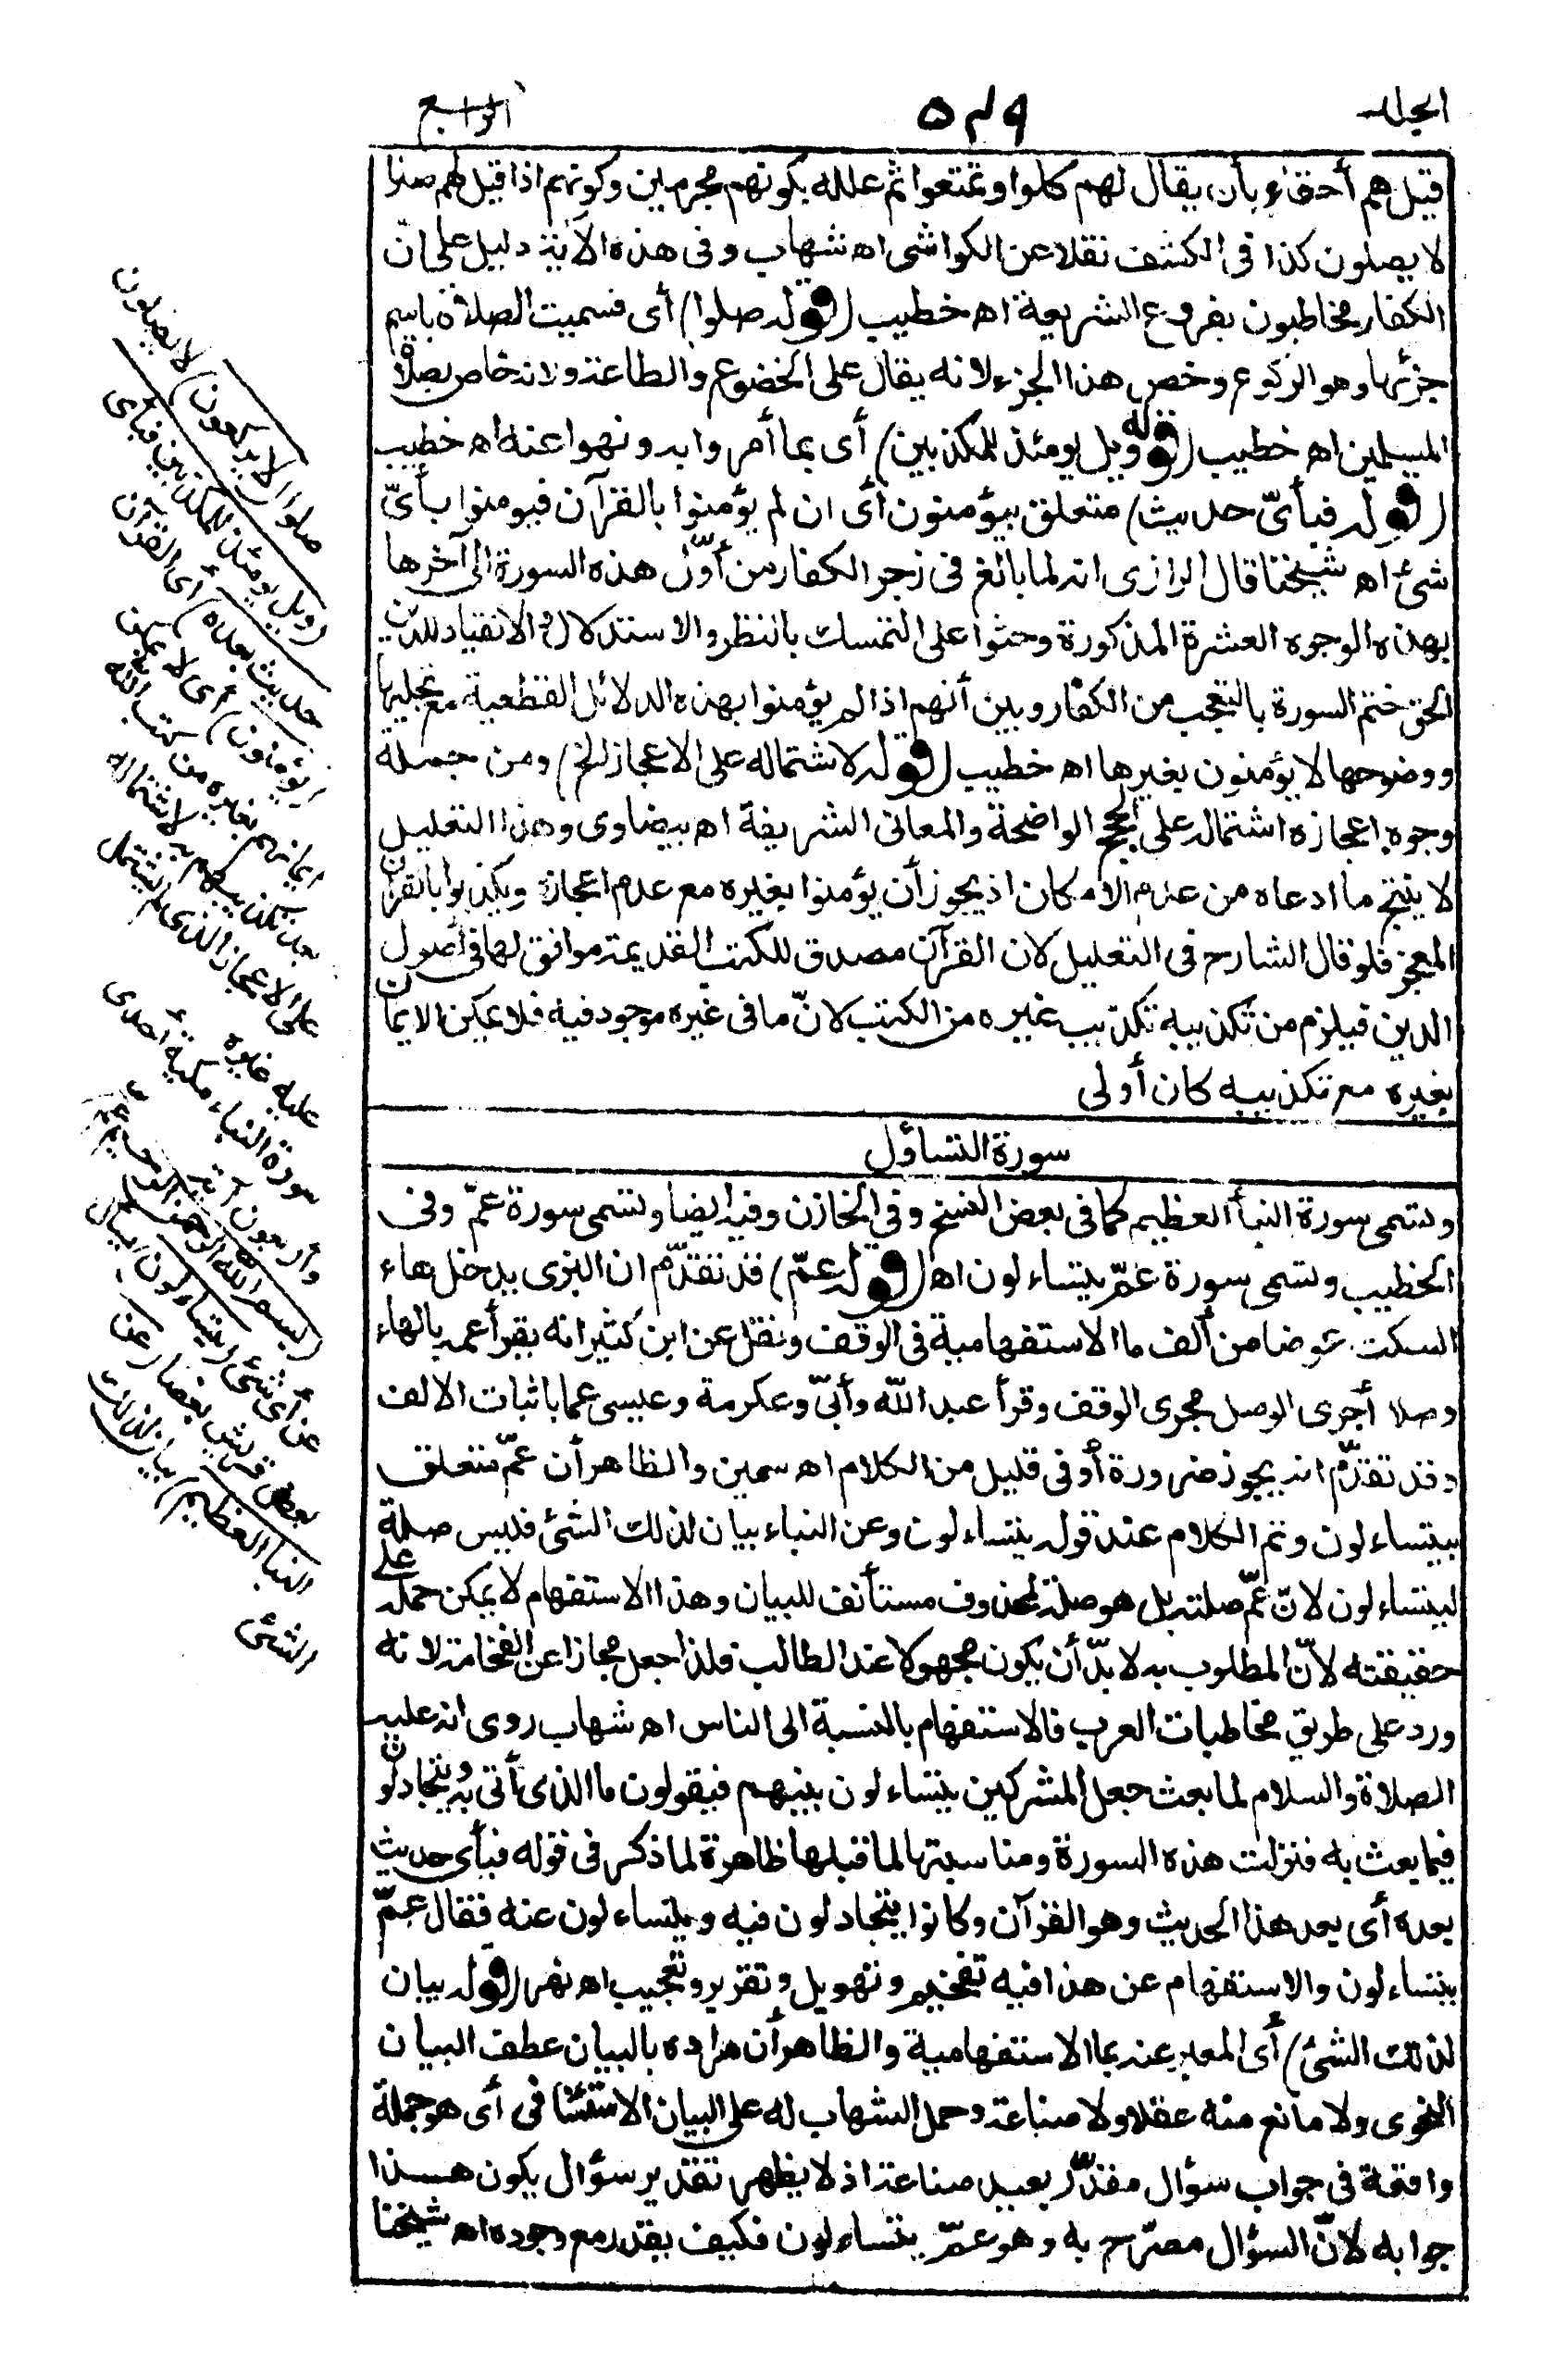 الجلد
٥٢٩
الرابع
قيل هم أحقاء بأن يقال لهم كلوا وتمتعوا ثم علله بكونهم مجرمين وكونهم اذا قيل لهم صلوا
لا يصلون كذا فى الكشف نقلا عن الكواشى اه شهاب وفى هذه الآية دليل على انّ
الكفار مخاطبون بفروع الشريعة اه خطيب (قوله صلوا) أى فسميت الصلاة باسم
جزئها وهو الركوع وخص هذا الجزء لانه يقال على الخضوع والطاعة ولانه خاص بصلاة
المسلمين اه خطيب (قوله ويل يومئذ للمكذبين) أى بما أمروا به ونهوا عنه اه خطيب
(قوله فبأىّ حديث) متعلق بيؤمنون أى ان لم يؤمنوا بالقرآن فيومنوا بأىّ
شئ اه شيخنا قال الرازى انه لما بالغ فى زجر الكفار من أوّل هذه السورة الى آخرها
بهذه الوجوه العشرة المذكورة وحثوا على التمسك بالنظر والاستدلال والانقياد للدين
الحق ختم السورة بالتعجب من الكفار وبين أنهم اذا لم يؤمنوا بهذه الدلائل القطعية مع تجليها
ووضوحها لا يؤمنون بغيرها اه خطيب (قوله لاشتماله على الاعجاز الخ) ومن جملة
وجوه اعجازه اشتماله على الحجج الواضحة والمعانى الشريفة اه بيضاوى وهذا التعليل
لا ينتج ما ادعاه من عدم الامكان اذ يجوز أن يؤمنوا بغيره مع عدم اعجازه ويكذبوا بالقرآن
المعجز فلو قال الشارح فى التعليل لان القرآن مصدق للكتب القديمة موافق لها فى أصول
الدين فيلزم من تكذيبه تكذيب غيره من الكتب لانّ ما فى غيره موجود فيه فلا يمكن الايمان
بغيره مع تكذيبه كان أولى
سورة التساؤل
وتسمى سورة النبأ العظيم كما فى بعض النسخ وفى الخازن وفيه ايضا وتسمى سورة عمّ وفى
الخطيب وتسمى سورة عمّ يتساءلون اه (قوله عمّ) قد تقدّم ان البزى يدخل هاء
السكت عوضا من ألف ما الاستفهامية فى الوقف ونقل عن ابن كثير انه يقرأ عمه بالهاء
وصلا أجرى الوصل مجرى الوقف وقرأ عبد الله وأبىّ وعكرمة وعيسى عما باثبات الالف
وقد تقدّم انه يجوز ضرورة أو فى قليل من الكلام اه سمين والظاهر أن عمّ متعلق
بيتساءلون وتم الكلام عند قوله يتساءلون وعن النباء بيان لذلك الشئ فليس صلة
ليتساءلون لانّ عمّ صلته بل هو صلة لمحذوف مستأنف للبيان وهذا الاستفهام لا يمكن حمله على
حقيقته لانّ المطلوب به لا بدّ أن يكون مجهولا عند الطالب فلذا جعل مجازا عن الفخامة لانه
ورد على طريق مخاطبات العرب فالاستفهام بالنسبة الى الناس اه شهاب روى انه عليه
الصلاة والسلام لما بعث جعل المشركين يتساءلون بينهم فيقولون ما الذى أتى به ويتجادلون
فيما بعث به فنزلت هذه السورة ومناسبتها لما قبلها ظاهرة لما ذكر فى قوله فبأى حديث
بعده أى بعد هذا الحديث وهو القرآن وكانوا يتجادلون فيه ويتساءلون عنه فقال عمّ
يتساءلون والاستفهام عن هذا فيه تفخيم وتهويل وتقرير وتعجيب اه نهر (قوله بيان
لذلك الشئ) أى المعبر عنه بما الاستفهامية والظاهر أن مراده بالبيان عطف البيان
النحوى ولا مانع منه عقلا ولا صناعة وحمل الشهاب له على البيان الاستئنافى أى هو جملة
واقعة فى جواب سؤال مقدّر بعيد صناعة اذ لا يظهر تقدير سؤال يكون هذا
جوابه لانّ السؤال مصرّح به وهو عمّ يتساءلون فكيف يقدر مع وجوده اه شيخنا
صلوا (لا يركعون) لا يصلون
(ويل يومئذ للمكذبين فبأى
حديث بعده) أى القرآن
(يؤمنون) أى لا يمكن
ايمانهم بغيره من كتب الله
بعد تكذيبهم به لاشتماله
على الاعجاز الذى لم يشتمل
عليه غيره
سورة النباء مكية أحدى
وأربعون آية
(بسم الله الرحمن الرحيم عم)
عن أى شئ (يتساءلون) يسأل
بعض قريش بعضا (عن
النبا العظيم) بيان لذلك
الشئ